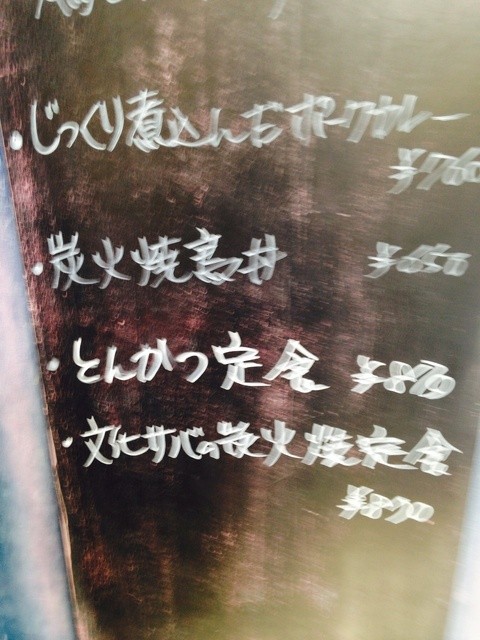 ・じっくり煮込んだポークカレー
¥760
・炭火焼鳥丼 ¥650
・とんかつ定食 ¥870
・文化サバの炭火焼定食
¥870